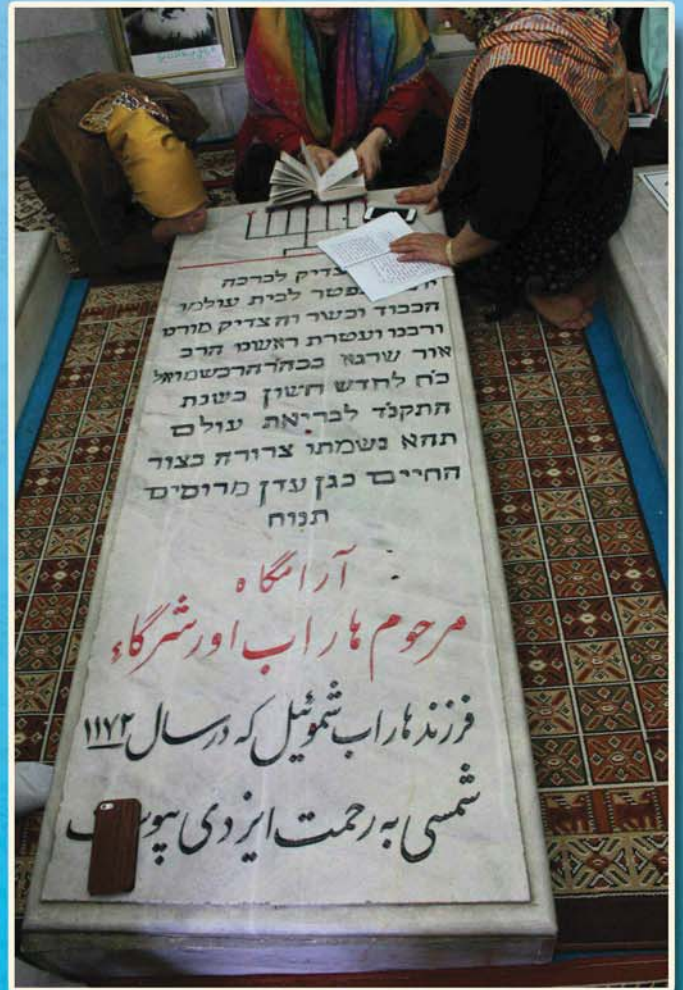 צדיק לברכה
נפטר לבית עולמו
הכבוד וכשר וה צדיק מורנו
ורבנו ועטרת ראשנו הרב
אור שרגא בכה'ר הרב שמואל
כ'ח לחדש חשון בשנת
התקנ'ד לבריאת עולם
תהא נשמתו צרורה בצור
החיים בגן עדן מרומים
תנוח
آرامگاه
مرحوم هاراب اورشرگاء
فرزند هاراب شموئیل که در سال ۱۱۷۲
شمسی به رحمت ایزدی